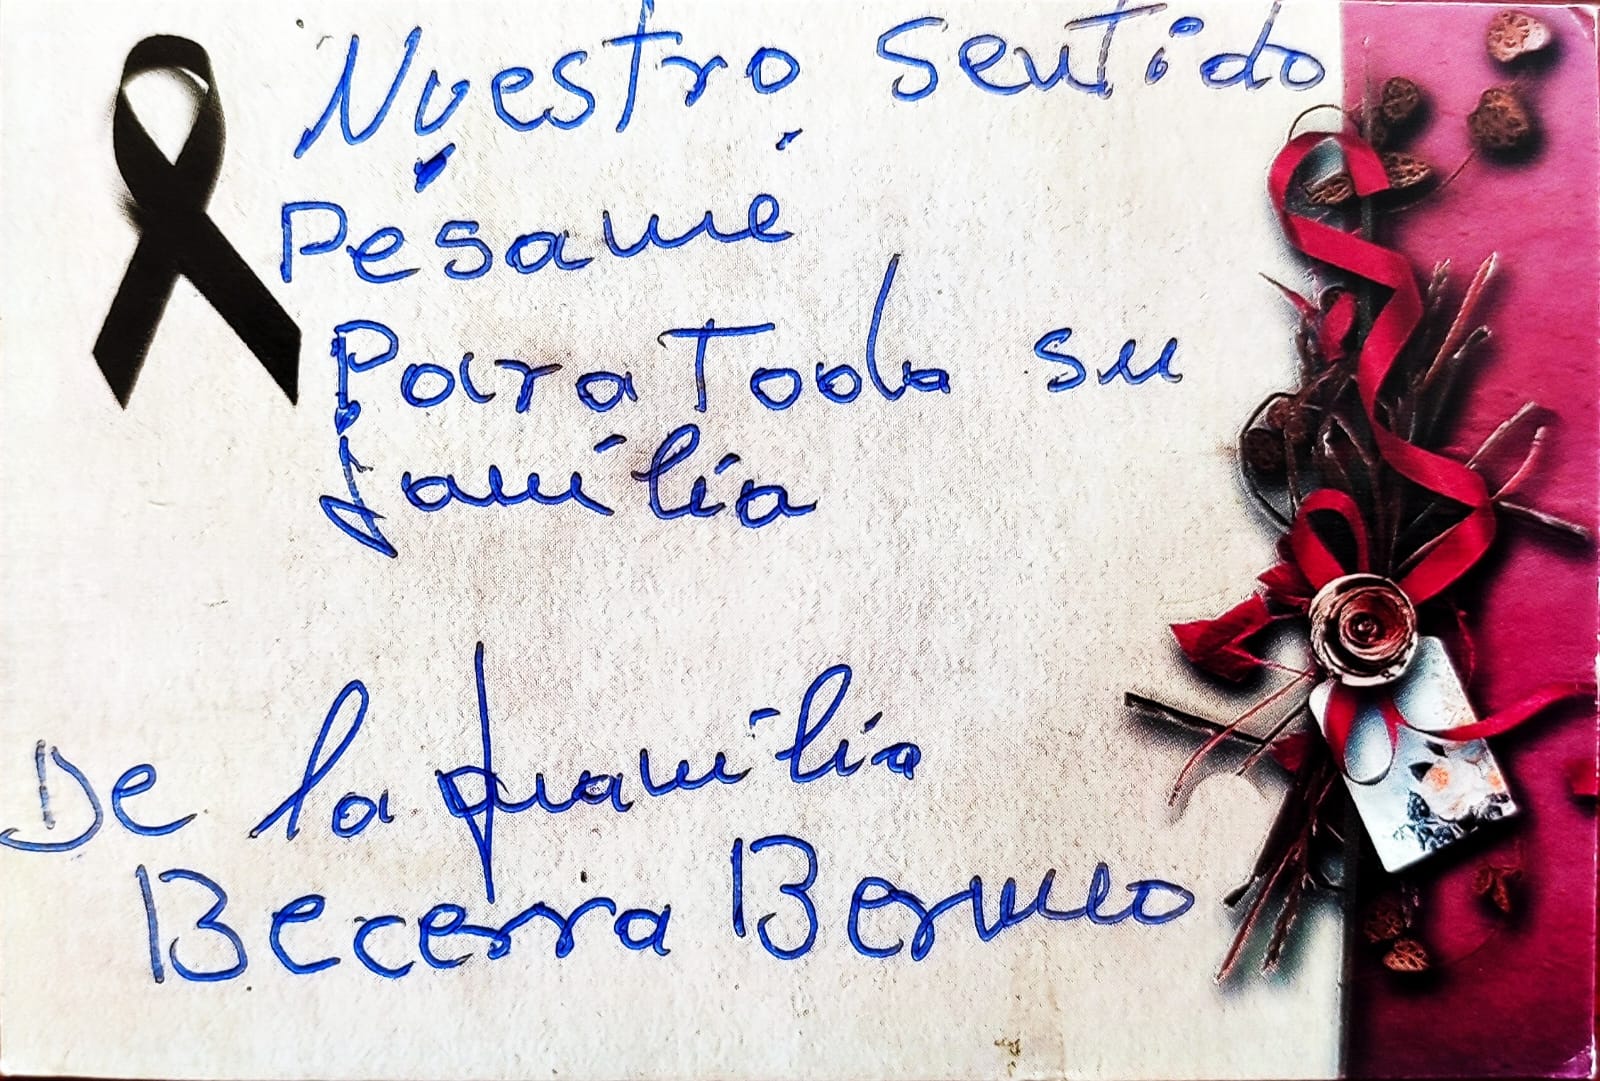 Nuestro sentido
Pesame
Para Toda su
familia
De la familia
Becerra Bermeo